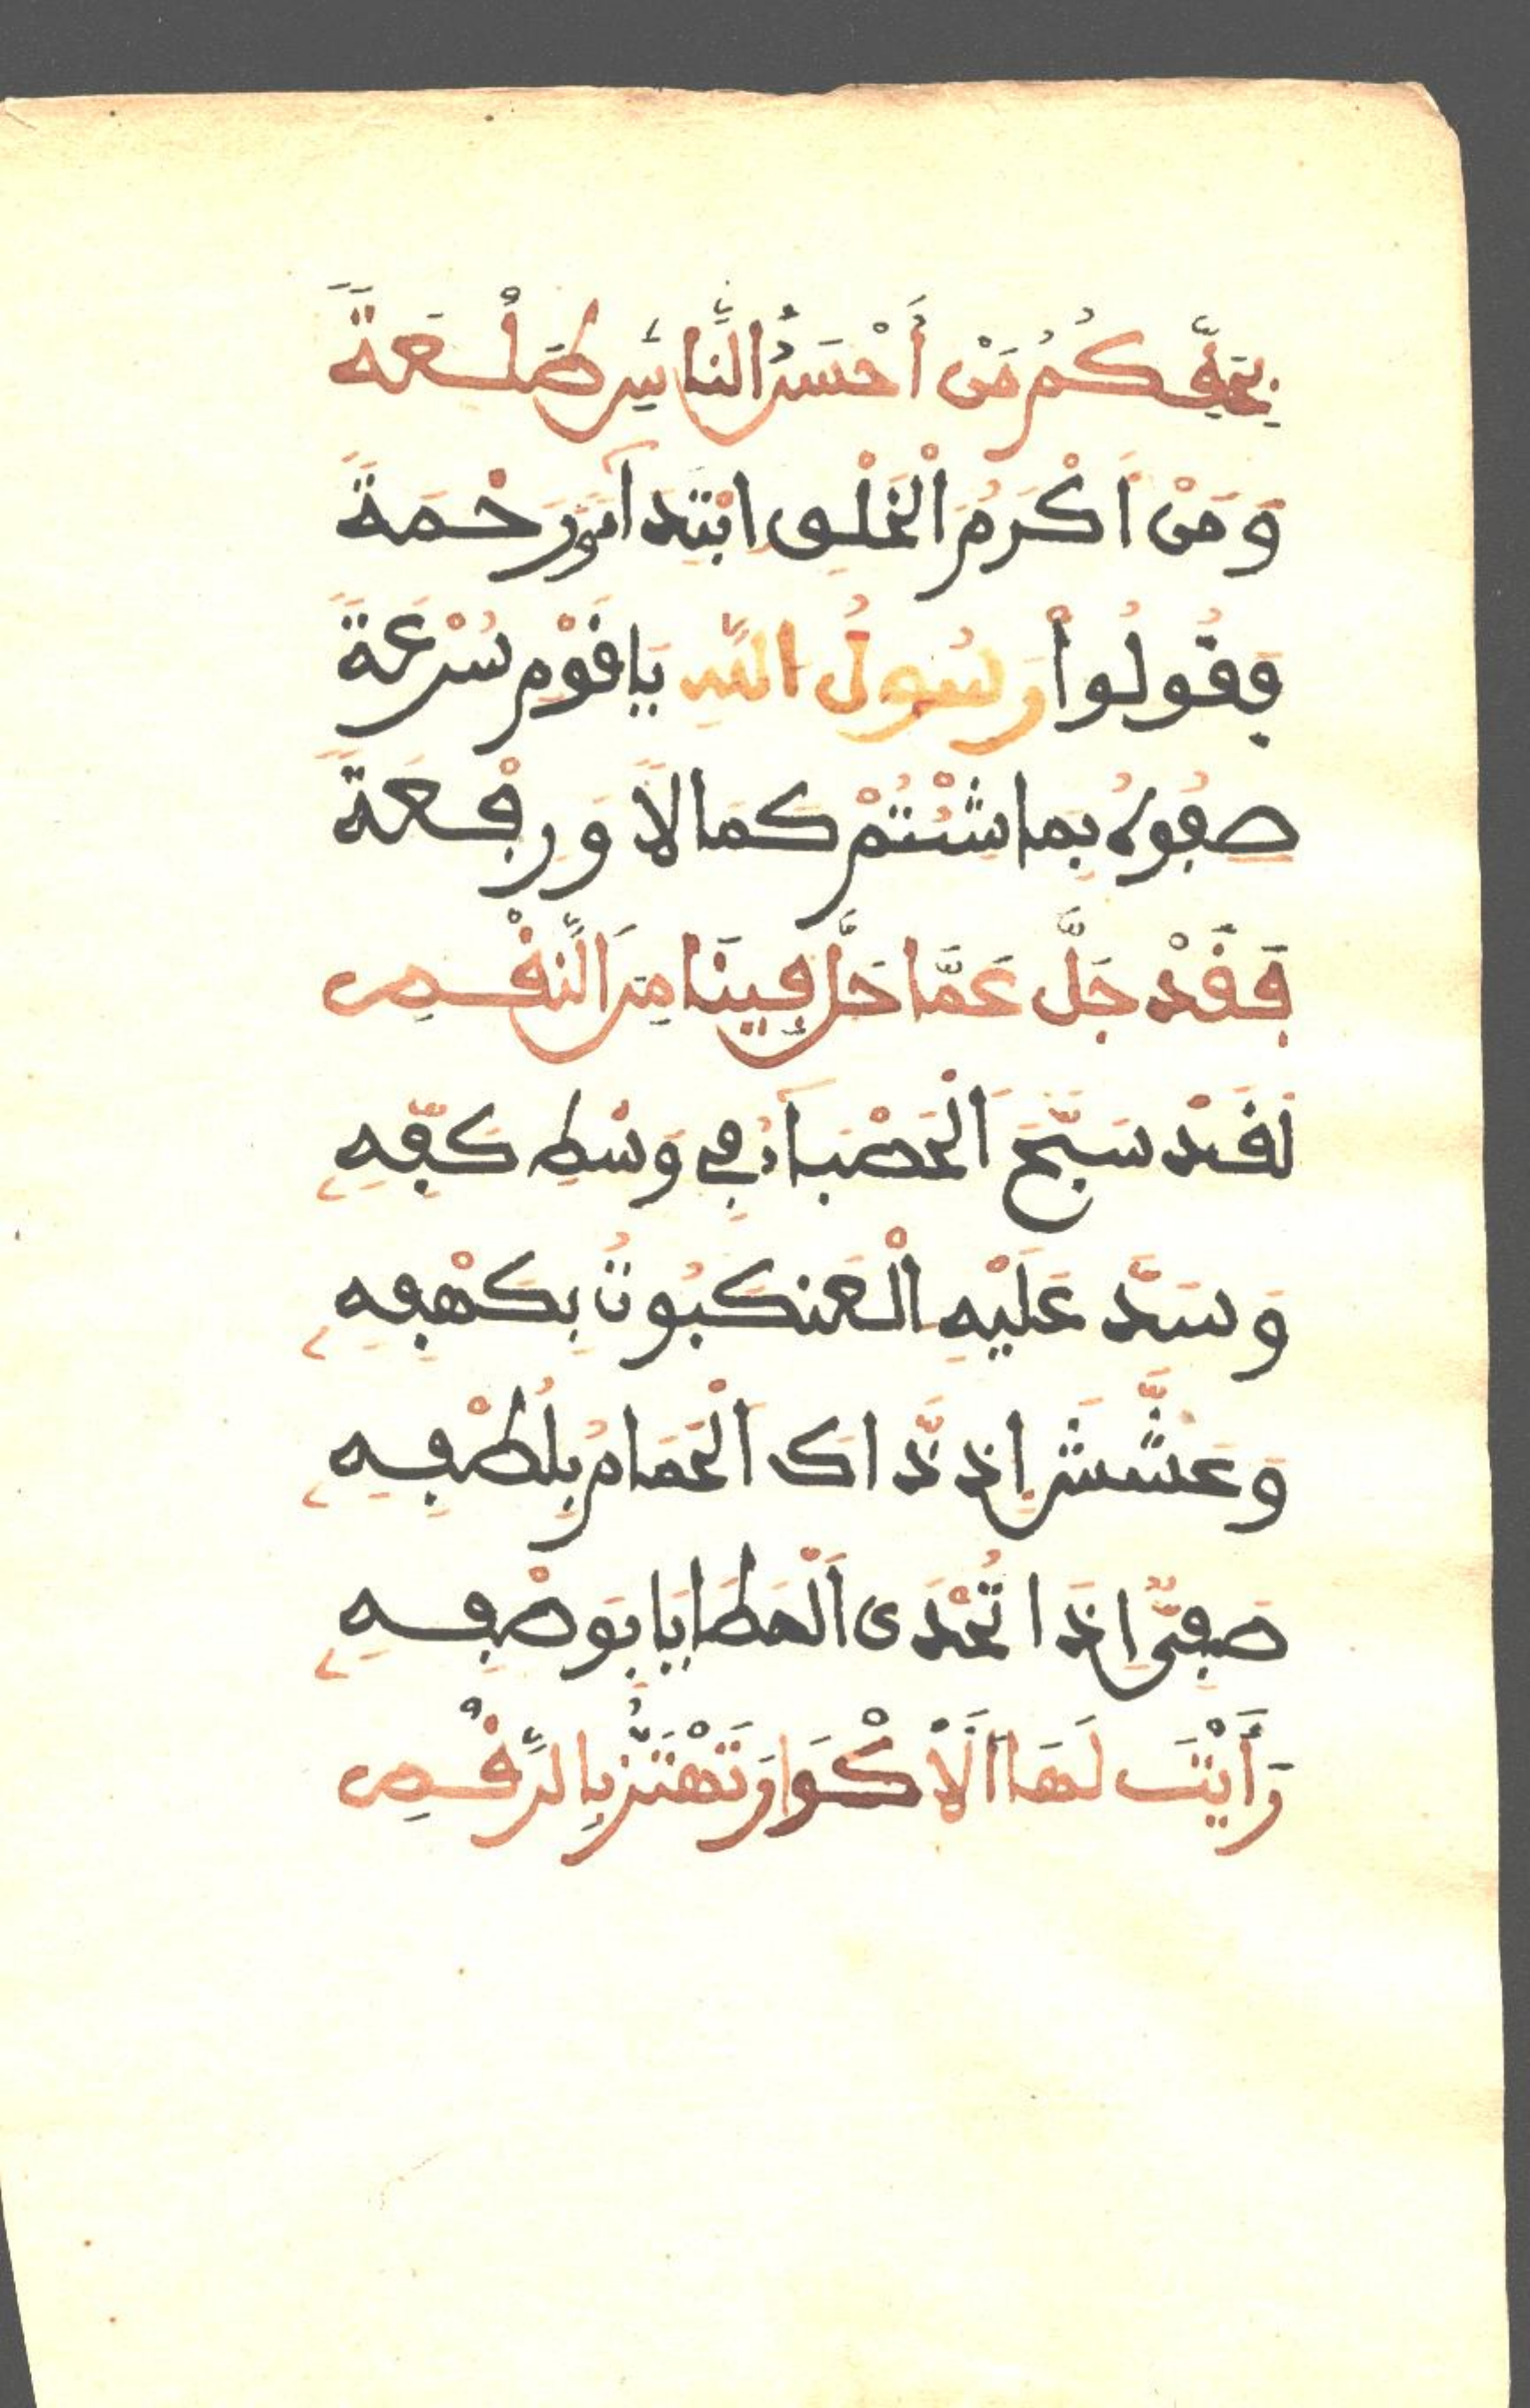 بِحَقِّكُمُ مَنْ أَحْسَنُ النَّاسِ طَلْعَةً
وَمَنْ أَكْرَمُ الْخَلْقِ ابْتِدَآءً وَرَحْمَةً
فَقُولُواْ رَسُولُ اللَّهِ يَا قَوْمِ سُرْعَةً
صِفُوهُ بِمَا شِئْتُمْ كَمَالًا وَرِفْعَةً
فَقَدْ جَلَّ عَمَّا حَلَّ فِينَا مِنَ النَّقْصِ
لَقَدْ سَبَّحَ الْحَصْبَآءُ فِي وَسْطِ كَفِّهِ
وَسَدَّ عَلَيْهِ الْعَنكَبُوتُ بِكَهْفِهِ
وَعَشَّشَ إِذ ذَّاكَ الْحَمَامُ بِلُطْفِهِ
صَفِيٌّ إِذَا تُحْدَى الْمَطَايَا بِوَصْفِهِ
رَأَيْتَ لَهَا الَأَكْوَارَ تَهْتَزُّ بِالرَّقْصِ